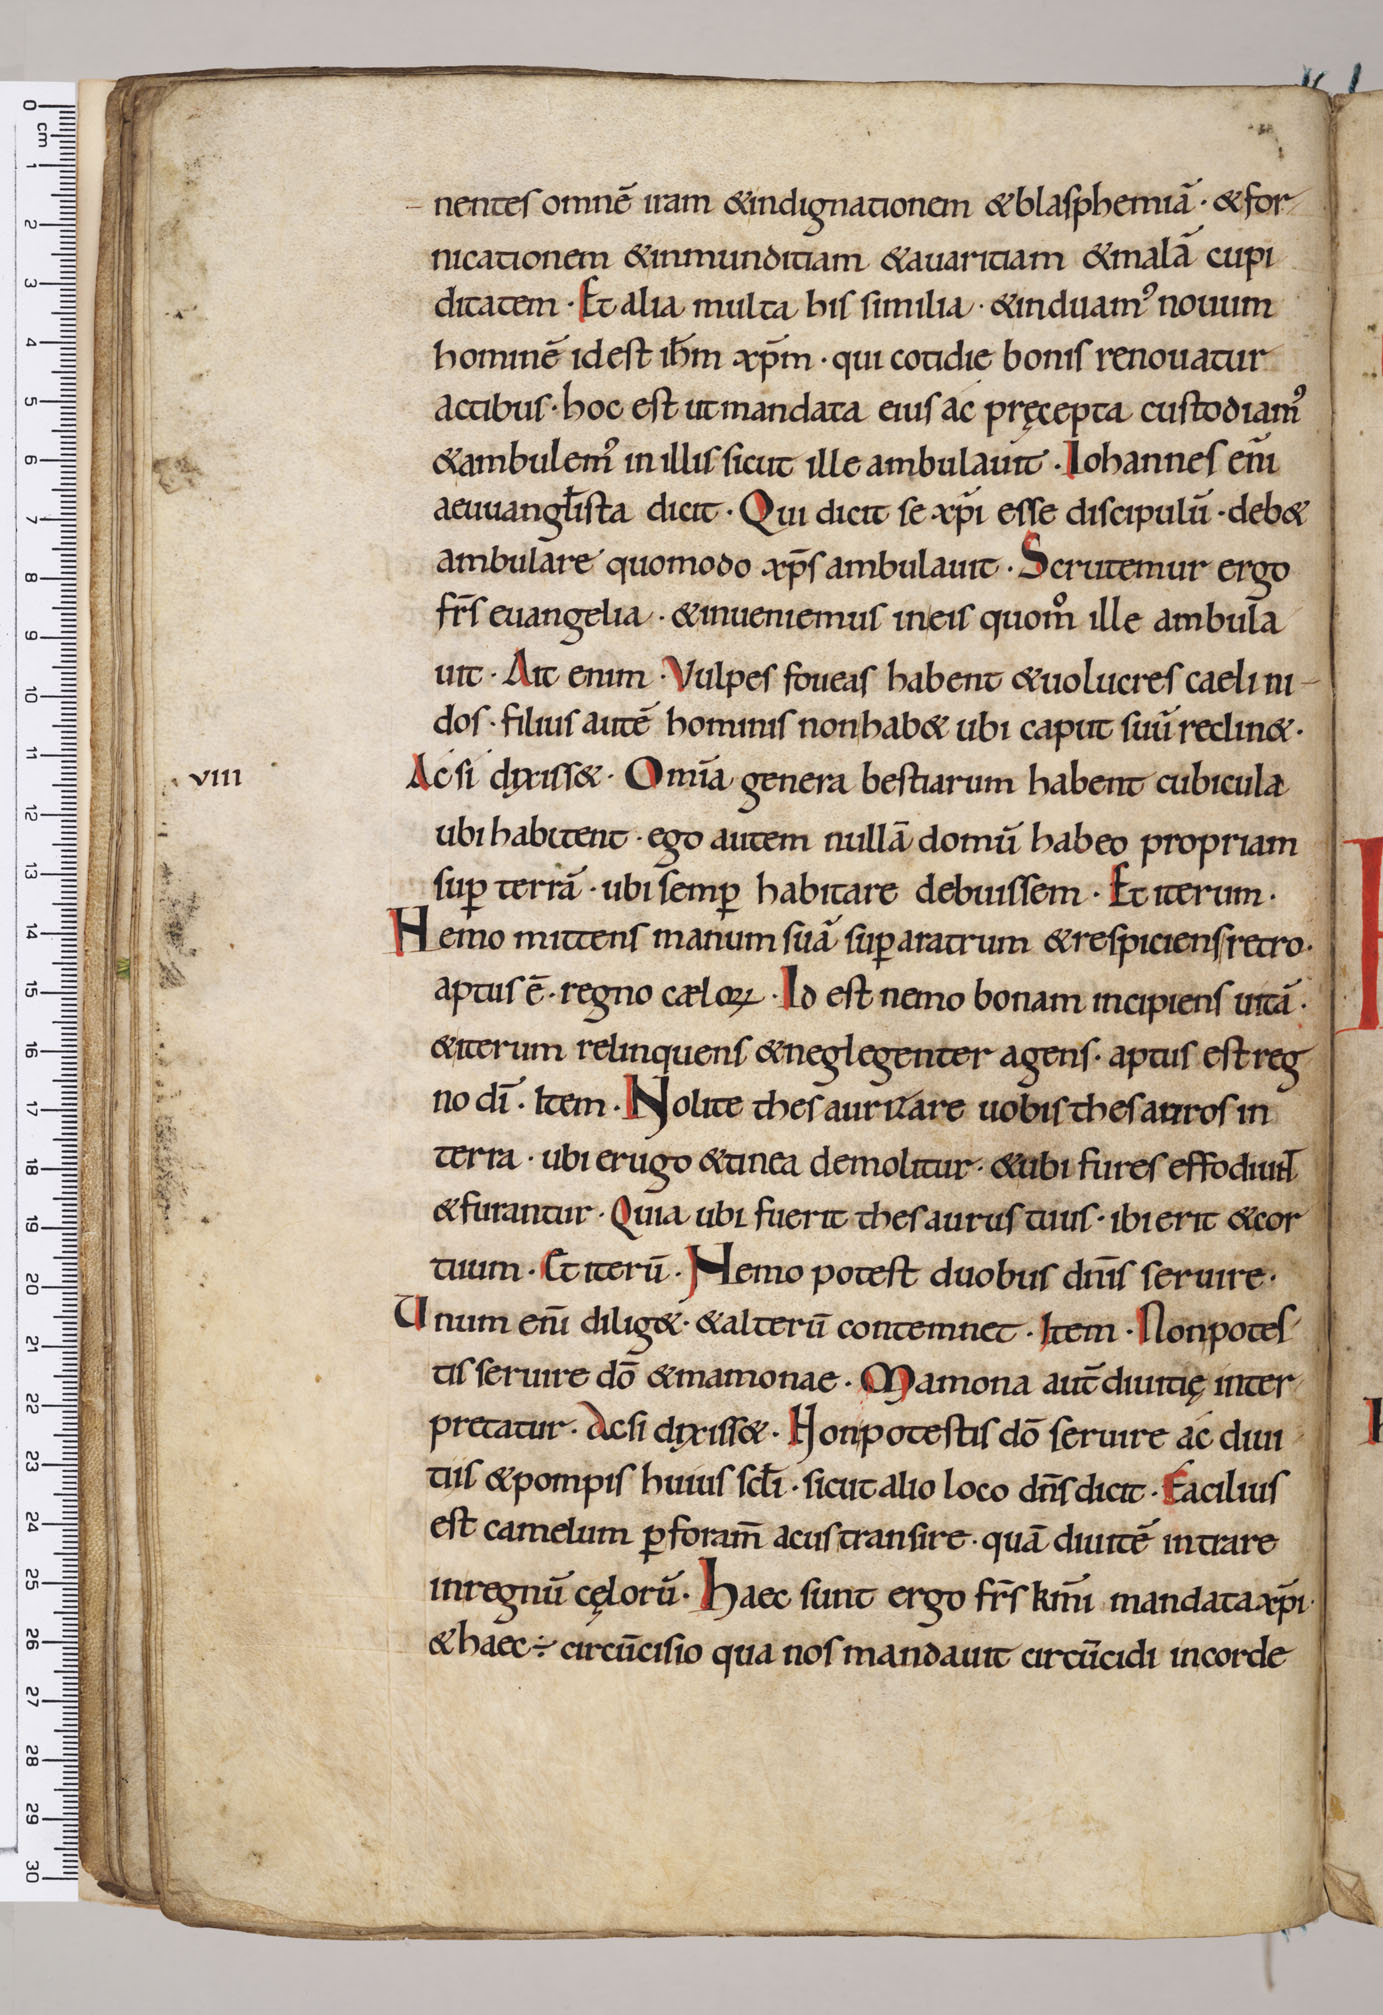 nentes omnē iram &indignationem &blasphemiā · &for
nicationem &inmunditiam &auaritiam &malā cupi
ditatem · Et alia multa his similia · &induamꝰ nouum
hominē idest ih̄m xp̄m · qui cotidie bonis renouatur
actibus · hoc est ut mandata eius ac pręcepta custodiamꝰ
&ambulemꝰ in illis sicut ille ambulauit · Iohannes eni̅
aeuuangłista dicit · Qui dicit se xp̄i esse discipulū · deb&
ambulare quomodo xp̄s ambulauit · Scrutemur ergo
fr̄s euangelia · &inueniemus ineis quom̊ ille ambula
uit · Ait enim · Vulpes foueas habent &uolucres caeli ni
dos · filius autē hominis nonhab& ubi caput suū reclin& ·
viii
Ac si dixiss& · Omīa genera bestiarum habent cubicula
ubi habitent · ego autem nullā domū habeo propriam
suꝑ terrā · ubi semꝑ habitare debuissem · Et iterum ·
Nemo mittens manum suā suꝑ aratrum &respiciens retro ·
aptus ē · regno cæloꝝ · Id est nemo bonam incipiens uitā ·
&iterum relinquens &neglegenter agens · aptus est reg
no dī · Item · Nolite thesaurizare uobis thesauros in
terra · ubi erugo &tinea demolitur · &ubi fures effodiuꝉ
&furantur · Quia ubi fuerit thesaurus tuus · ibi erit &cor
tuum · Et iterū · Nemo potest duobus dn̄is seruire ·
Unum eni̅ dilig& · &alterū contemnet · Item · Nonpotes
tis seruire dō &mamonae · Mamona aut̄ diuitię inter
pretatur · Acsi dixiss& · Nonpotestis dō seruire ac diui
tiis &pompis huius scłi · sicut alio loco dn̄s dicit · Facilius
est camelum ꝑ foram̄ acus transire · quā diuitē intrare
inregnū cęlorū · Haec sunt ergo fr̄s km̄i mandata xp̄i ·
&haec ÷ circūcisio qua nos mandauit circūcidi incorde